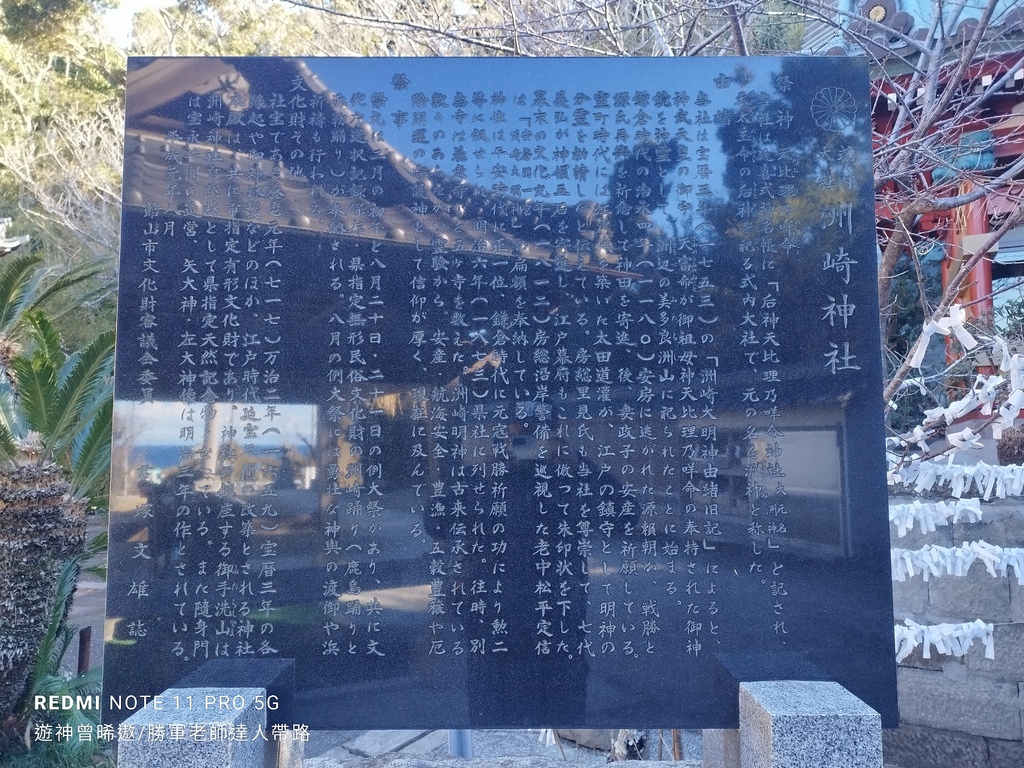 洲崎神社
祭神 天比理乃咩命
「后神天比理乃咩命神社大 元名洲神」と記され、
の后神を祀る式内大社で、元の名を洲神と称した。
由緒
当社は宝暦三年(一七五三)の「洲崎大明神由緒旧記」によると、
神武天皇の御 天富命が御祖母神天比理乃咩命の奉持された御神
鏡を神霊として、洲辺の美多良洲山に祀られたことに始まる。
鎌倉時代の治承四年(一一八〇)安房に逃がれた源頼朝が、戦勝と
源氏再興を祈念して神田を寄進、後、妻政子の安産を祈願している。
室町時代には 築いた太田道灌が、江戸の鎮守として明神の
分霊を勧請したと伝えている。房総里見氏も当社を尊崇して、七代
義弘が神領五石を寄進し、江戸幕府もこれに倣って朱印状を下した。
幕末の文化九年(一八一二)房総沿岸警備を巡視した老中松平定信
は、「 」の扁額を奉納している。
神位は平安時代に正 位、鎌倉時代に元寇戦勝祈願の功により勲二
等に叙せられ、明治六年(一八七三)県社に列せられた。往時、別
当寺は 寺を数えた 洲崎明神は古来伝承されている
数々の 霊験から、安産・航海安全・豊漁・五穀豊穣や厄
除 の 神として信仰が厚く、現在に及んでいる。
祭事
祭礼は二月の初午と八月二十日・二十一日の例大祭があり、共に文
化庁選択記録 ・県指定無形民俗文化財の洲崎踊り(鹿島踊りと
踊り)が奉納される。八月の例大祭には勇壮な神輿の渡御や浜
祈祷も行われる。
文化財その他
社宝である 元年(七一七)万治二年(一六五九)宝暦三年の各
縁起や などのほか、江戸時代延宝年間の改築とされる神社
本殿は、共に市指定有形文化財であり、神 の鎮座する御手洗山は
洲崎神社 として県指定天然記念物となっている。また随身門
は宝永年間の造営、矢大神・左大神像は明治三年の作とされている。
平成元年八月
館山市文化財審議会委員 文雄 誌
REDMI NOTE 11 PRO 5G
遊神曾晞遨/勝軍老師達人帶路